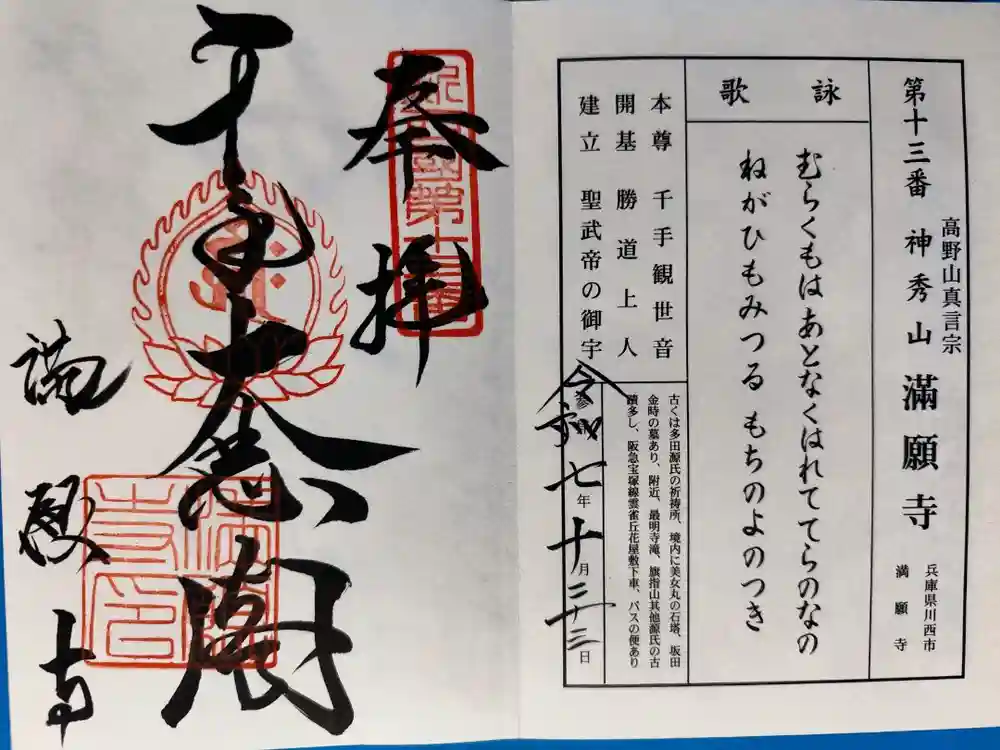 第十三番 神秀山 滿願寺
高野山真言宗
兵庫県川西市
満願寺
詠歌
むらくもはあとなくはれててらのなの
ねがひもみつる もちのよのつき
本尊 千手観世音
開基 勝道上人
建立 聖武帝の御宇
古くは多田源氏の祈祷所、境内に美女丸の石塔、坂田
金時の墓あり、附近、最明寺滝、旗指山其他源氏の古
蹟多し、阪急宝塚線雲雀丘花屋敷下車、バスの便あり
令和七年十月二十三日
奉拝
千手大悲閣
満願寺